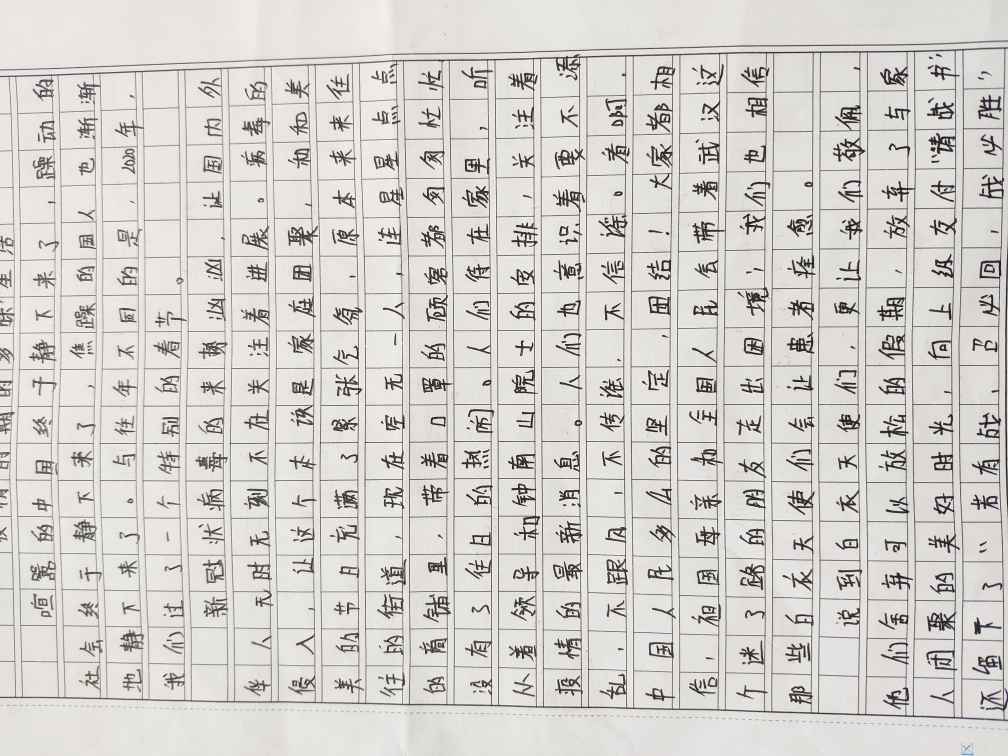 喧嚣的中国终于静下来了,躁动的
社会终于静下来了,焦躁的国人也渐渐
地静下来了。与往年不同的是,2020年,
我们过了一个特别的看节。
新冠状病毒的来袭汹汹,让国内外
华人无时无刻不在关注着进展。病毒的
侵入,让这个本该是家庭团聚,和和美
美的节日充满了紧张气氛,原本来来往
往的街道,现在空无一人,连星星点点
的商铺里,带着口罩的顾客都匆匆忙忙,
没有了往日的热闹。人们待在家里,听
从着领导和钟南山院士的安排,关注着
疫情的最新消息。人们也意识着要不添
乱,不跟风,不传谣,不信谣。看啊,
中国人民多么的坚定,团结!大家都相
信,祖国母亲和全国人民会带着武汉这
个迷了路的朋友走出困境;我们也相信
那些白衣天使们会让患者痊愈。
说到白衣天使们,更让我们敬佩,
他们舍弃可以放松的假期,放弃了与家
人团聚的美好时光,向上级交付“请战书”,
还留下了“若有战,召必回,战必胜”,